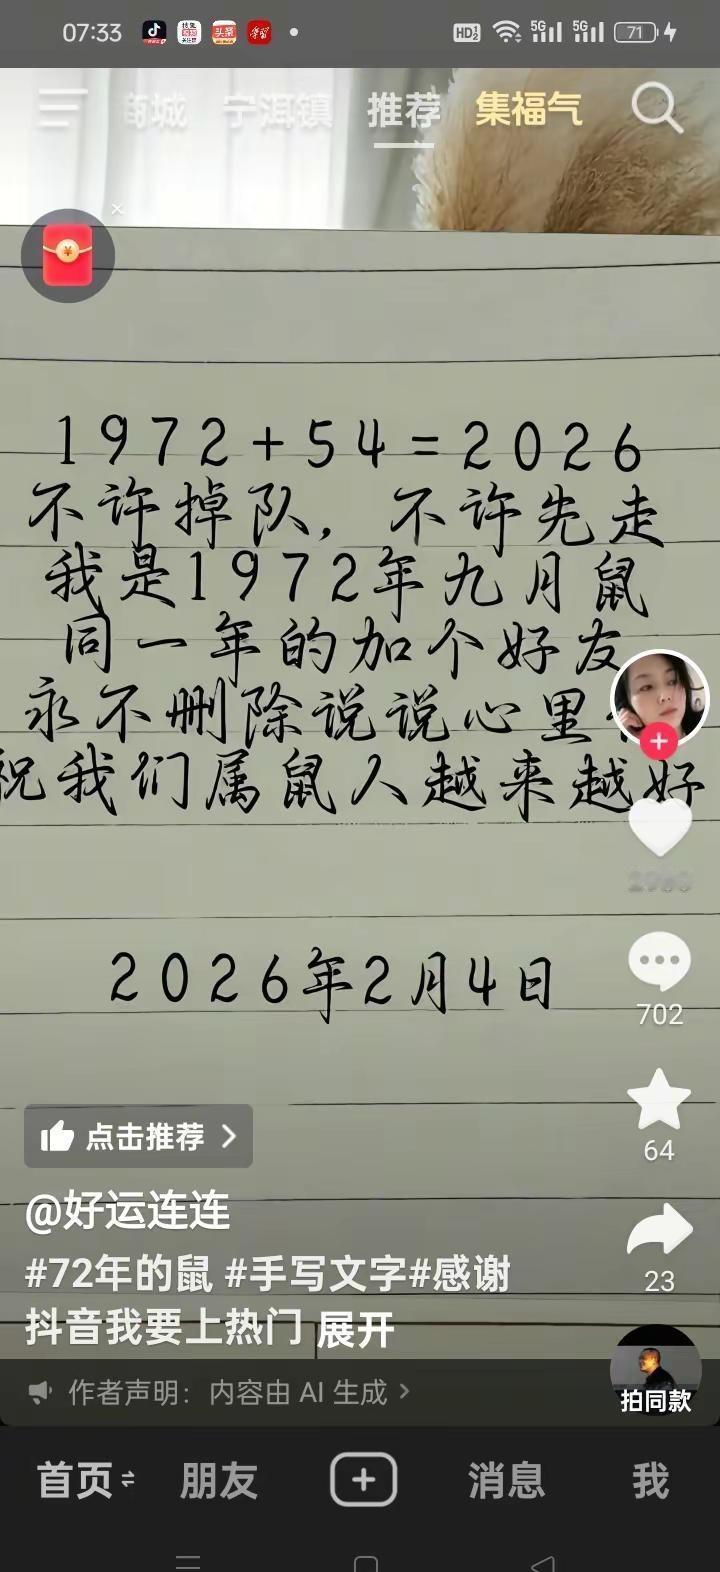 07:33
HD
5G
5G
71
商城 宁洱镇 推荐 集福气
1972+54=2026
不许掉队，不许先走
我是1972年九月鼠
同一年的加个好友
永不删除说说心里
祝我们属鼠人越来越好
2026年2月4日
702
64
23
点击推荐
@好运连连
#72年的鼠 #手写文字#感谢
抖音我要上热门 展开
作者声明：内容由 AI 生成
拍同款
首页 朋友 消息 我